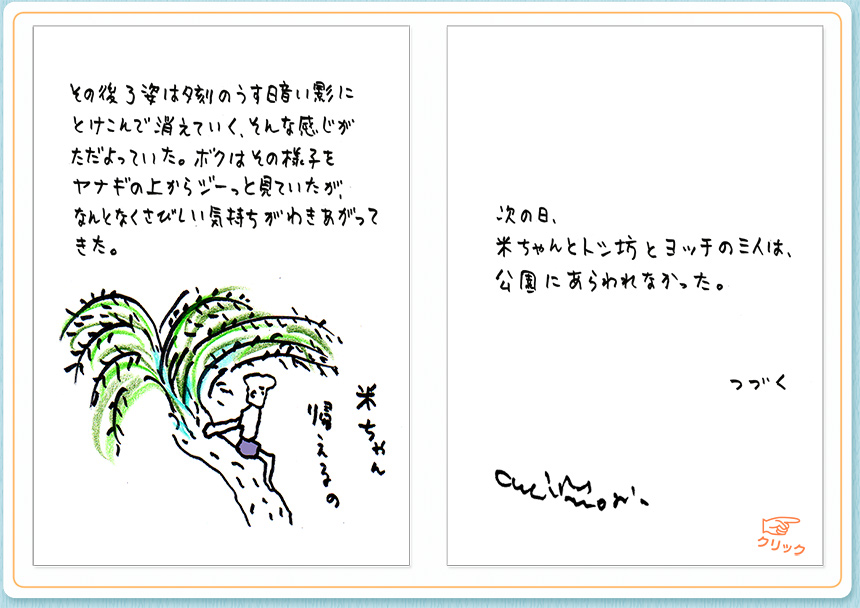 その後ろ姿は夕刻のうす暗い影に
とけこんで消えていく、そんな感じが
ただよっていた。ボクはその様子を
ヤナギの上からジーっと見ていたが、
なんとなくさびしい気持ちがわきあがって
きた。
米ちゃん
帰えるの
次の日、
米ちゃんとトシ坊とヨッチの三人は、
公園にあらわれなかった。
つづく
クリック